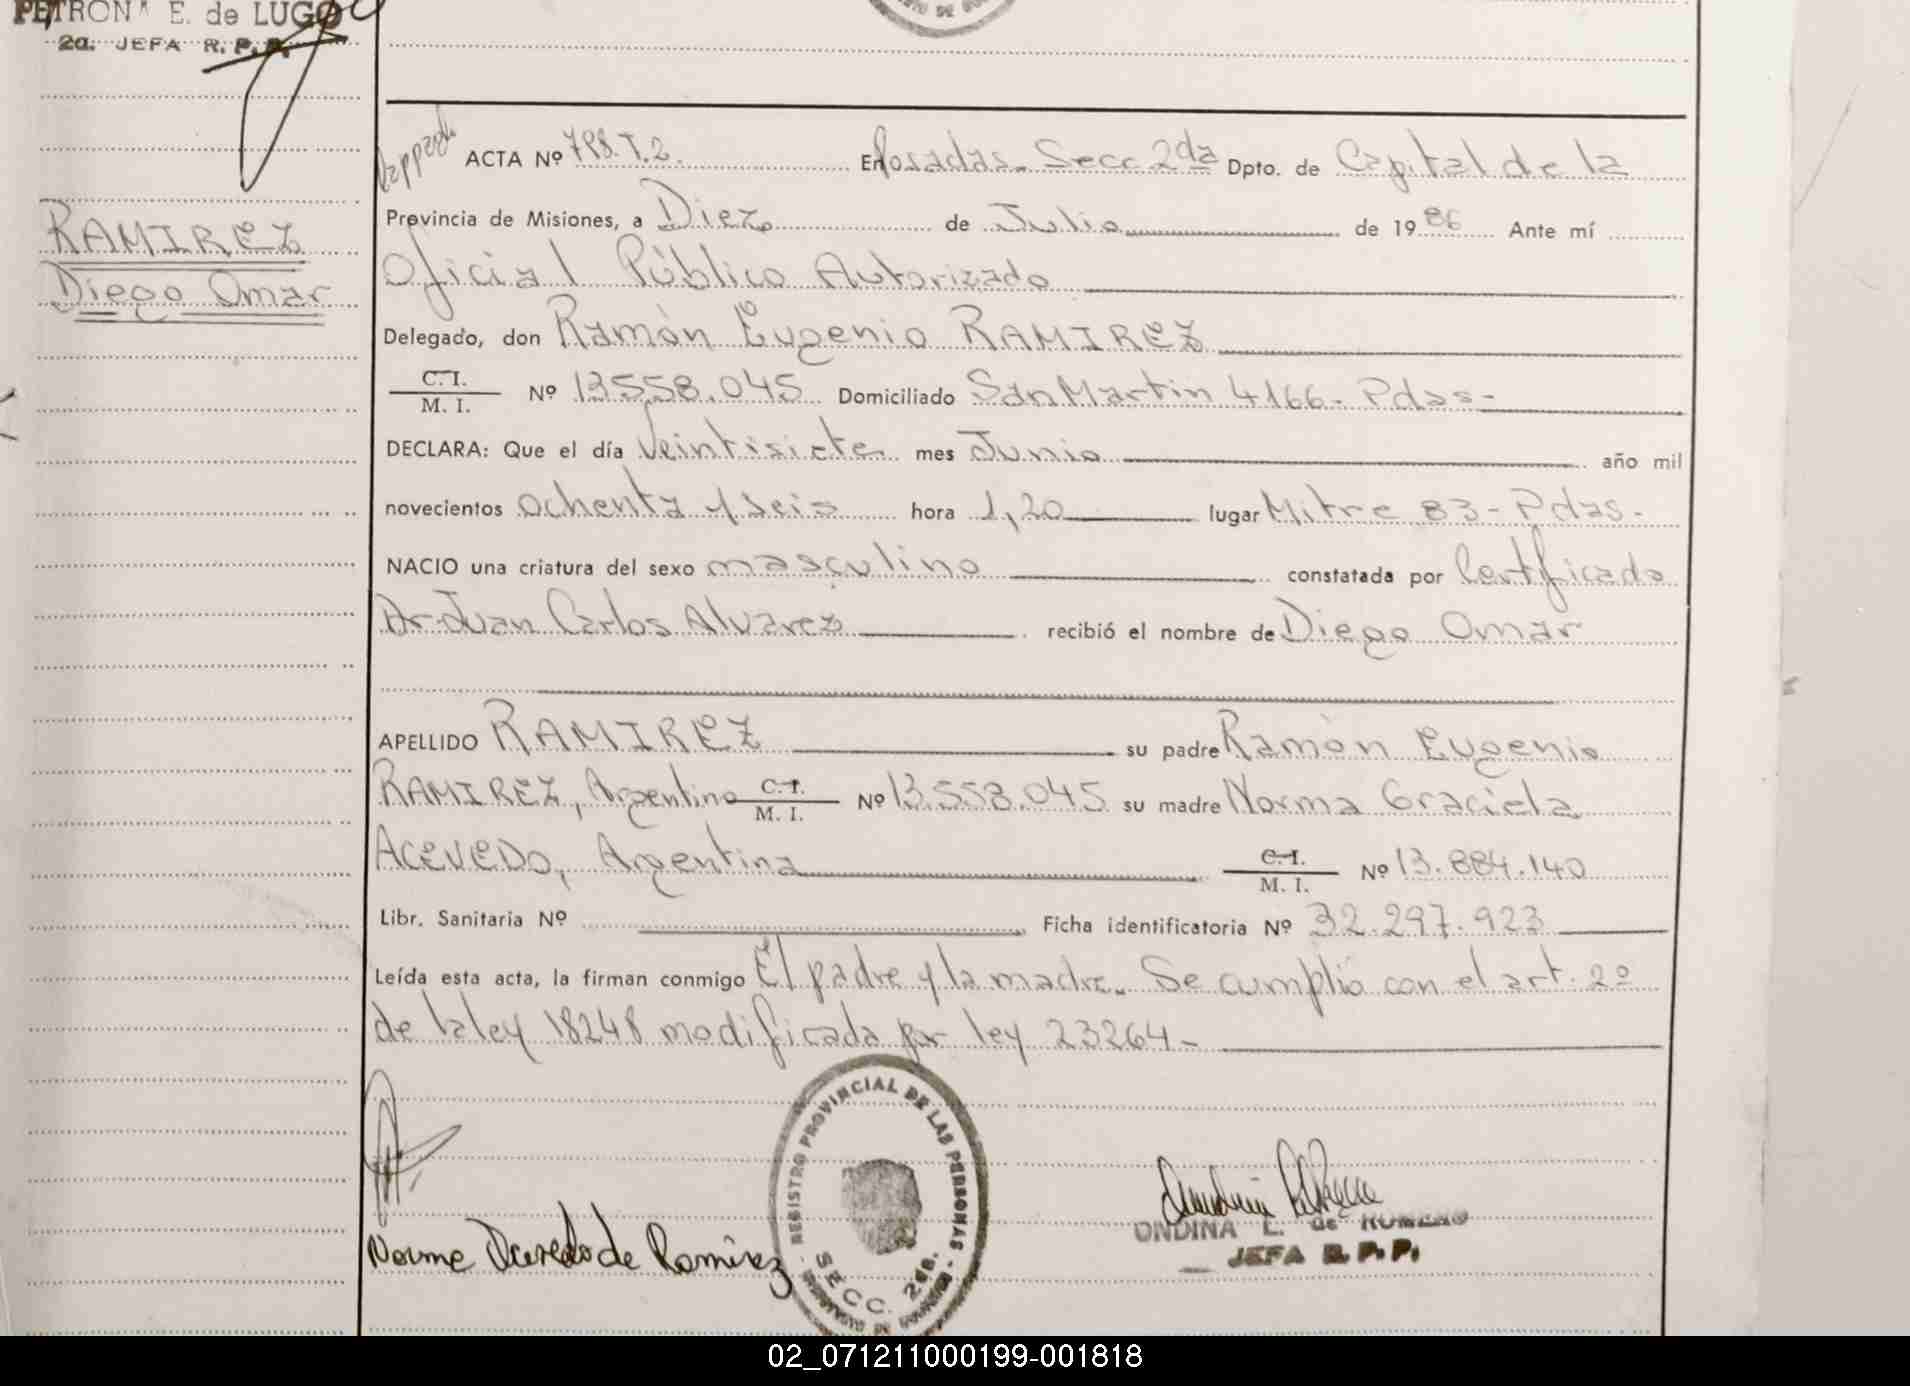 PETRONA E. de LUGO
2a. JEFA R. P. P.
RAMIREZ
Diego Omar
ACTA Nº 798.T.2. En Posadas. Secc 2da Dpto. de Capital de la
Provincia de Misiones, a Diez de Julio de 1986 Ante mí
Oficial Público Autorizado
Delegado, don Ramón Eugenio RAMIREZ
C. I.
M. I. Nº 13.558.045 Domiciliado San Martin 4166- Pdas-
DECLARA: Que el día Veintisiete mes Junio año mil
novecientos ochenta y seis hora 1,20 lugar Mitre 83- Pdas-
NACIO una criatura del sexo masculino constatada por Certificado
Dr Juan Carlos Alvarez recibió el nombre de Diego Omar
APELLIDO RAMIREZ su padre Ramón Eugenio
RAMIREZ, Argentino C. I. M. I. Nº 13.558.045 su madre Norma Graciela
ACEVEDO, Argentina C. I. M. I. Nº 13.884.140
Libr. Sanitaria Nº Ficha identificatoria Nº 32.297.923
Leída esta acta, la firman conmigo El padre y la madre. Se cumplió con el art. 2º
de la ley 18248 modificada por ley 23264-
REGISTRO PROVINCIAL DE LAS PERSONAS
SECC. 2da.
Norma Acevedo de Ramirez
ONDINA L. de ROMERO
JEFA R. P. P.
02_071211000199-001818